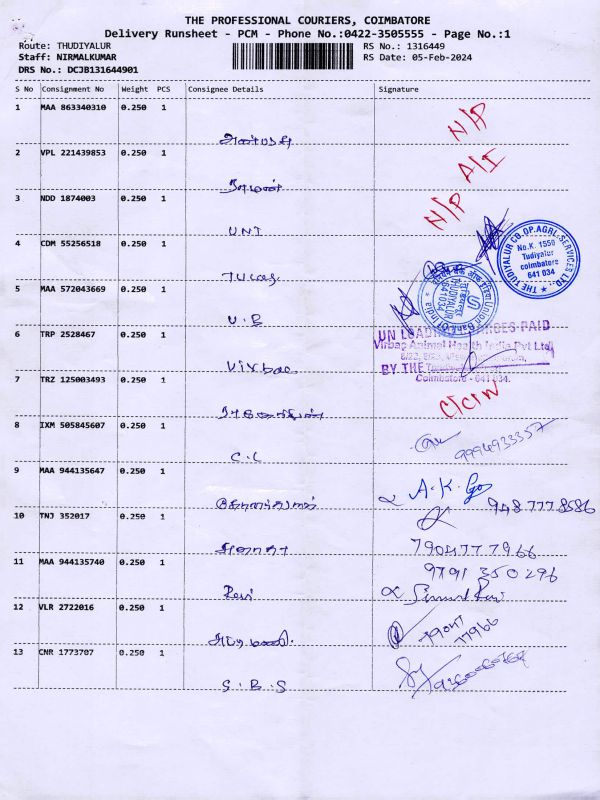 THE PROFESSIONAL COURIERS, COIMBATORE
Delivery Runsheet - PCM - Phone No.:0422-3505555 - Page No.:1
Route: THUDIYALUR RS No.: 1316449
Staff: NIRMALKUMAR RS Date: 05-Feb-2024
DRS No.: DCJB131644901
S No Consignment No Weight PCS Consignee Details Signature
1 MAA 863340310 0.250 1 N/P
2 VPL 221439853 0.250 1 A/I
3 NDD 1874003 0.250 1 N/P
UNI
4 CDM 55256518 0.250 1
Tucas
THE TUDIYALUR CO.OP.AGRL.SERVICES LTD.
No.K. 1550
Tudiyalur
coimbatore
641 034
5 MAA 572043669 0.250 1
U.B
Union Bank of India
THUDIYALUR
641034
6 TRP 2528467 0.250 1
Virbac
UN LOADING CHARGES PAID
Virbac Animal Health India Pvt Ltd
BY THE
Coimbatore - 641 034.
7 TRZ 125003493 0.250 1
8 IXM 505845607 0.250 1
C.C
9994933357
9 MAA 944135647 0.250 1
A.K.
948 777 8586
10 TNJ 352017 0.250 1
7904777966
11 MAA 944135740 0.250 1
9791 350 296
Ravi
12 VLR 2722016 0.250 1
79047
77966
13 CNR 1773707 0.250 1
S.B.S